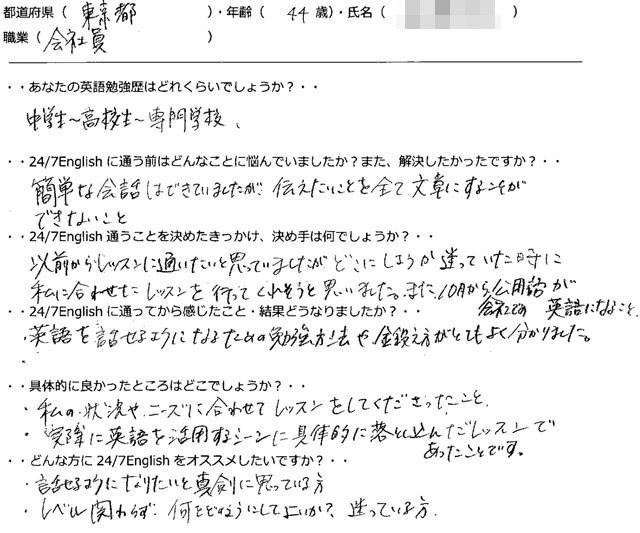 都道府県（ 東京都 ）・年齢（ 44 歳）・氏名（ ）
職業（ 会社員 ）
・・あなたの英語勉強歴はどれくらいでしょうか？・・
中学生～高校生～専門学校、
・・24/7English に通う前はどんなことに悩んでいましたか？また、解決したかったですか？・・
簡単な会話はできていましたが、伝えたいことを全て文章にすることが
できないこと
・・24/7English 通うことを決めたきっかけ、決め手は何でしょうか？・・
以前からレッスンに通いたいと思っていましたがどこにしようか迷っていた時に
私に合わせたレッスンを行ってくれそうと思いました。また10月から公用語が
会社での 英語になること
・・24/7English に通ってから感じたこと・結果どうなりましたか？・・
・英語を話せるようになるための勉強方法や鍛え方がとてもよく分かりました。
・
・・具体的に良かったところはどこでしょうか？・・
・私の状況やニーズに合わせてレッスンをしてくださったこと、
・実際に英語を活用するシーンに具体的に落とし込んだレッスンで
あったことです。
・・どんな方に 24/7English をオススメしたいですか？・・
・話せるようになりたいと真剣に思っている方
・レベル関わらず、何をどのようにしてよいか？、迷っている方、